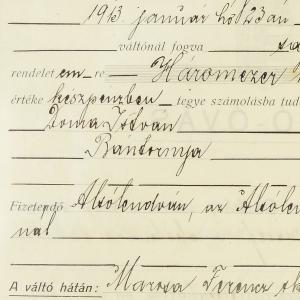 1913 január hó 23 án
váltónál fogva
rendelet em re Háromezer
értéke készpénzben tegye számolásba
Doma István
Bántornya
Fizetendő Alsólendván, az Alsólen
nál
A váltó hátán: Marosa Ferenc